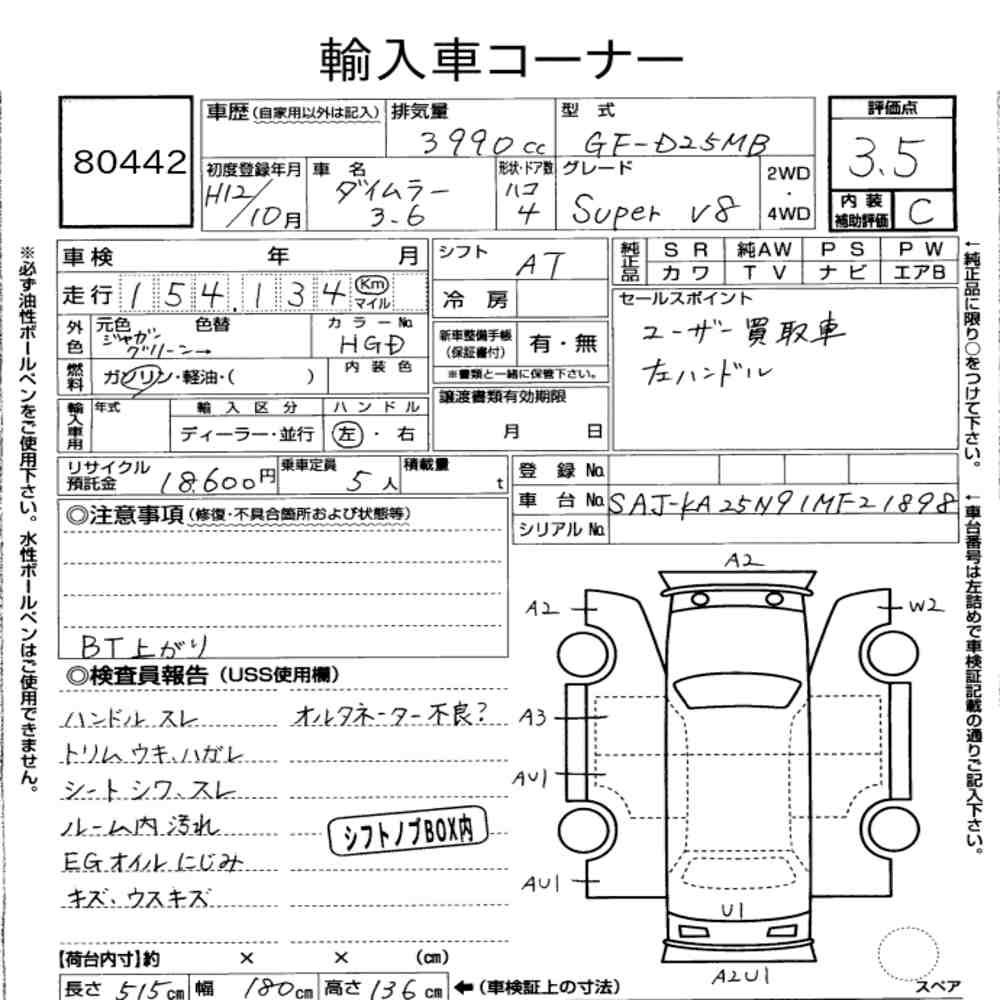 輸入車コーナー
80442
車歴(自家用以外は記入) 排気量 3990cc 型式 GF-D25MB
評価点 3.5
初度登録年月 H12/10月 車名 ダイムラー 3-6 形状・ドア数 ハコ 4 グレード Super V8 2WD・4WD
内装補助評価 C
車検 年 月 シフト AT
純正品 SR 純AW PS PW
カワ TV ナビ エアB
走行 154,134 Km マイル 冷房
セールスポイント
ユーザー買取車
左ハンドル
外色 元色 ジャガーグリーン→ 色替 カラーNo. HGD
新車整備手帳(保証書付) 有・無
※書類と一緒に保管下さい。
燃料 ガソリン・軽油・( ) 内装色
譲渡書類有効期限
月 日
輸入車用 年式 輸入区分 ハンドル
ディーラー・並行 左・右
リサイクル預託金 18,600円 乗車定員 5人 積載量 t
登録No.
車台No. SAJ-KA25N91MF21898
シリアルNo.
◎注意事項(修復・不具合箇所および状態等)
BT上がり
◎検査員報告(USS使用欄)
ハンドルスレ オルタネーター不良?
トリムウキ、ハガレ
シートシワ、スレ
ルーム内汚れ
シフトノブBOX内
EGオイルにじみ
キズ、ウスキズ
【荷台内寸】約 × × (cm)
長さ 515cm 幅 180cm 高さ 136cm ←(車検証上の寸法)
A2
A2 W2
A3
AU1
AU1
U1
A2U1
スペア
※必ず油性ボールペンをご使用下さい。水性ボールペンはご使用できません。
←純正品に限り○をつけて下さい。
←車台番号は左詰めで車検証記載の通りご記入下さい。